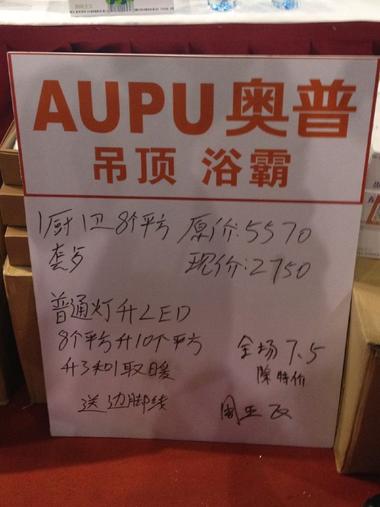 AUPU奥普
吊顶 浴霸
1厨1卫8个平方 原价:5570
套 现价:2750
普通灯升LED
8个平方升10个平方
升3和1取暖
送边脚线
全场7.5
除特价